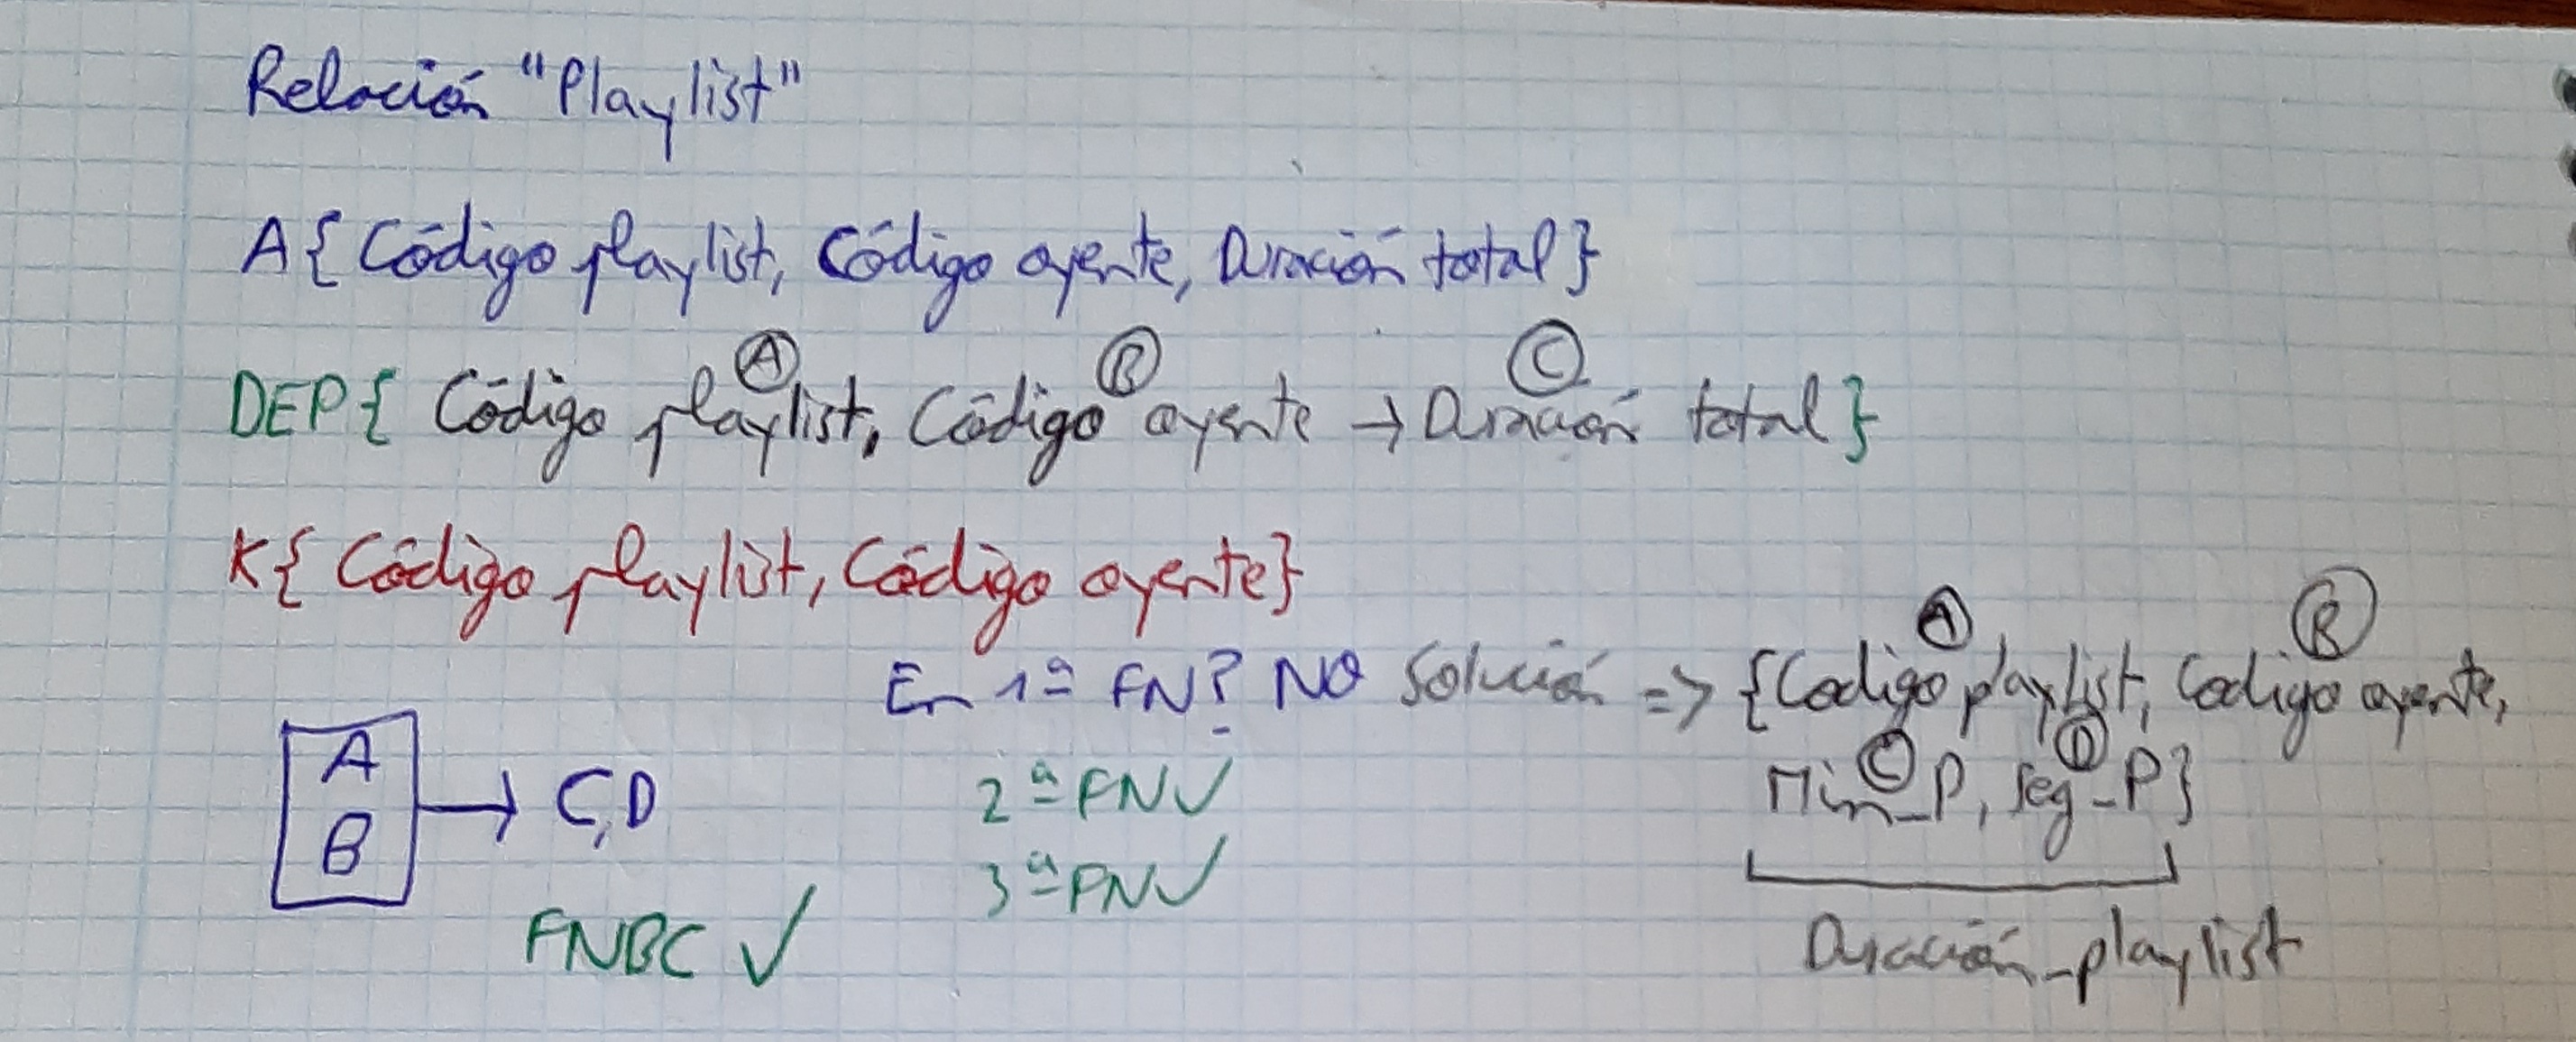 Relación "Playlist"
A{ Código playlist, Código oyente, Duración total}
A B C
DEP{ Código playlist, Código oyente → Duración total}
K{ Código playlist, Código oyente}
A B
En 1ª FN? NO Solución => {Codigo playlist, Codigo oyente,
C D
Min_P, seg_P}
Duración_playlist
A
B
→ C,D
2ª FN ✓
3ª FN ✓
FNBC ✓